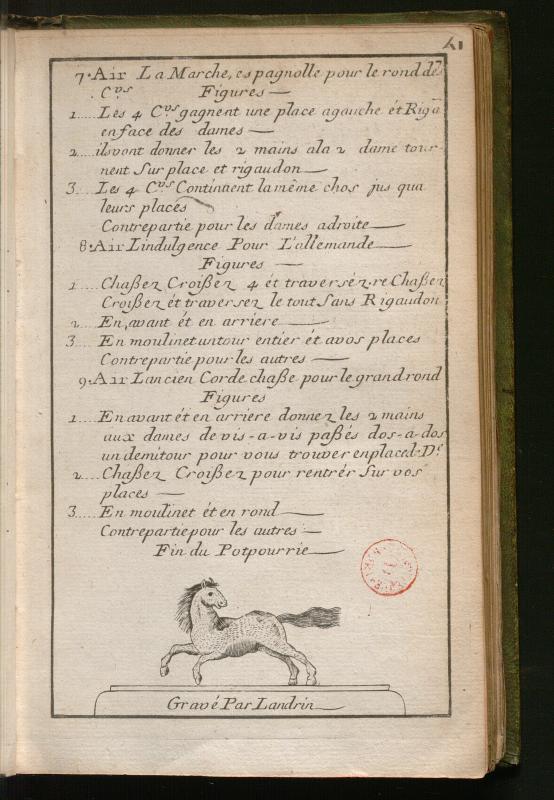 41
7.Air La Marche, espagnolle pour le rond des
Cvrs Figures
1.....Les 4 Cvrs gagnent une place agauche ét Riga
enface des dames
2.....ilsvont donner les 2 mains ala 2 dame tour-
nent Sur place et rigaudon
3.....Les 4 Cvrs Continüent la même chos jus qua
leurs places
Contrepartie pour les dames adroite
8.Air Lindulgence Pour L'allemande
Figures
1.....Chaßez Croißez 4 ét traverséz, re Chaßez
Croißez ét traversez le tout Sans Rigaudon
2.....En, avant ét en arriere
3.....En moulinet untour entier ét avos places
Contrepartie pour les autres
9.Air Lancien Corde chaße pour le grand rond
Figures
1.....En avant ét en arriere donnez les 2 mains
aux dames de vis-a-vis paßés dos-a-dos
un demitour pour vous trouver enplaced. De
2.....Chaßez Croißez pour rentrér Sur vos
places
3.....En moulinet ét en rond
Contrepartie pour les autres
Fin du Potpourrie
Gravé Par Landrin